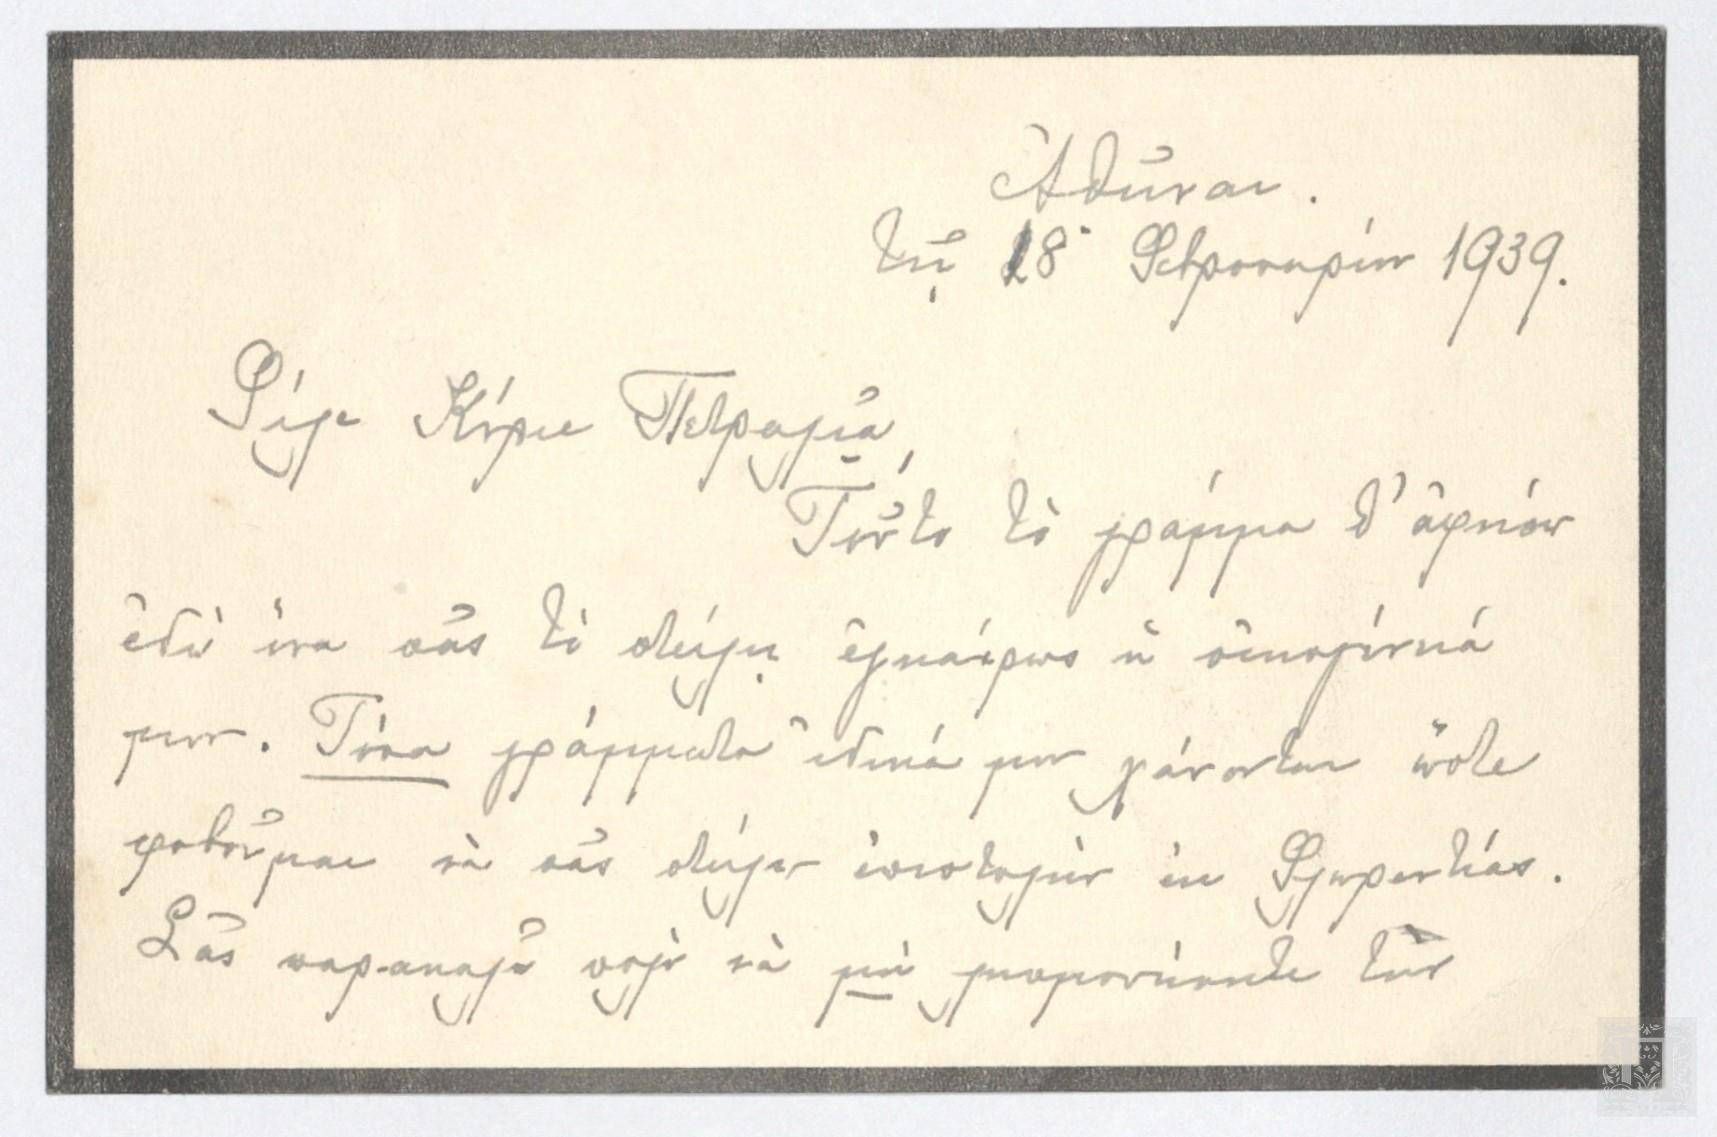 Ἀθῆναι.
τῇ 18 Φεβρουαρίου 1939.
Φίλε Κύριε Πετραλιᾶ,
Τοῦτο τὸ γράμμα θ' ἀφήσω
ἐδῶ ἵνα σᾶς τὸ στείλῃ ἐγκαίρως ἡ οἰκογένειά
μου. Τόσα γράμματα ἰδικά μου χάνονται ὥστε
φοβοῦμαι νὰ σᾶς στείλω ἐπιστολὴν ἐκ Φλωρεντίας.
Σᾶς παρακαλῶ πολὺ νὰ μὴ λησμονήσητε τὴν